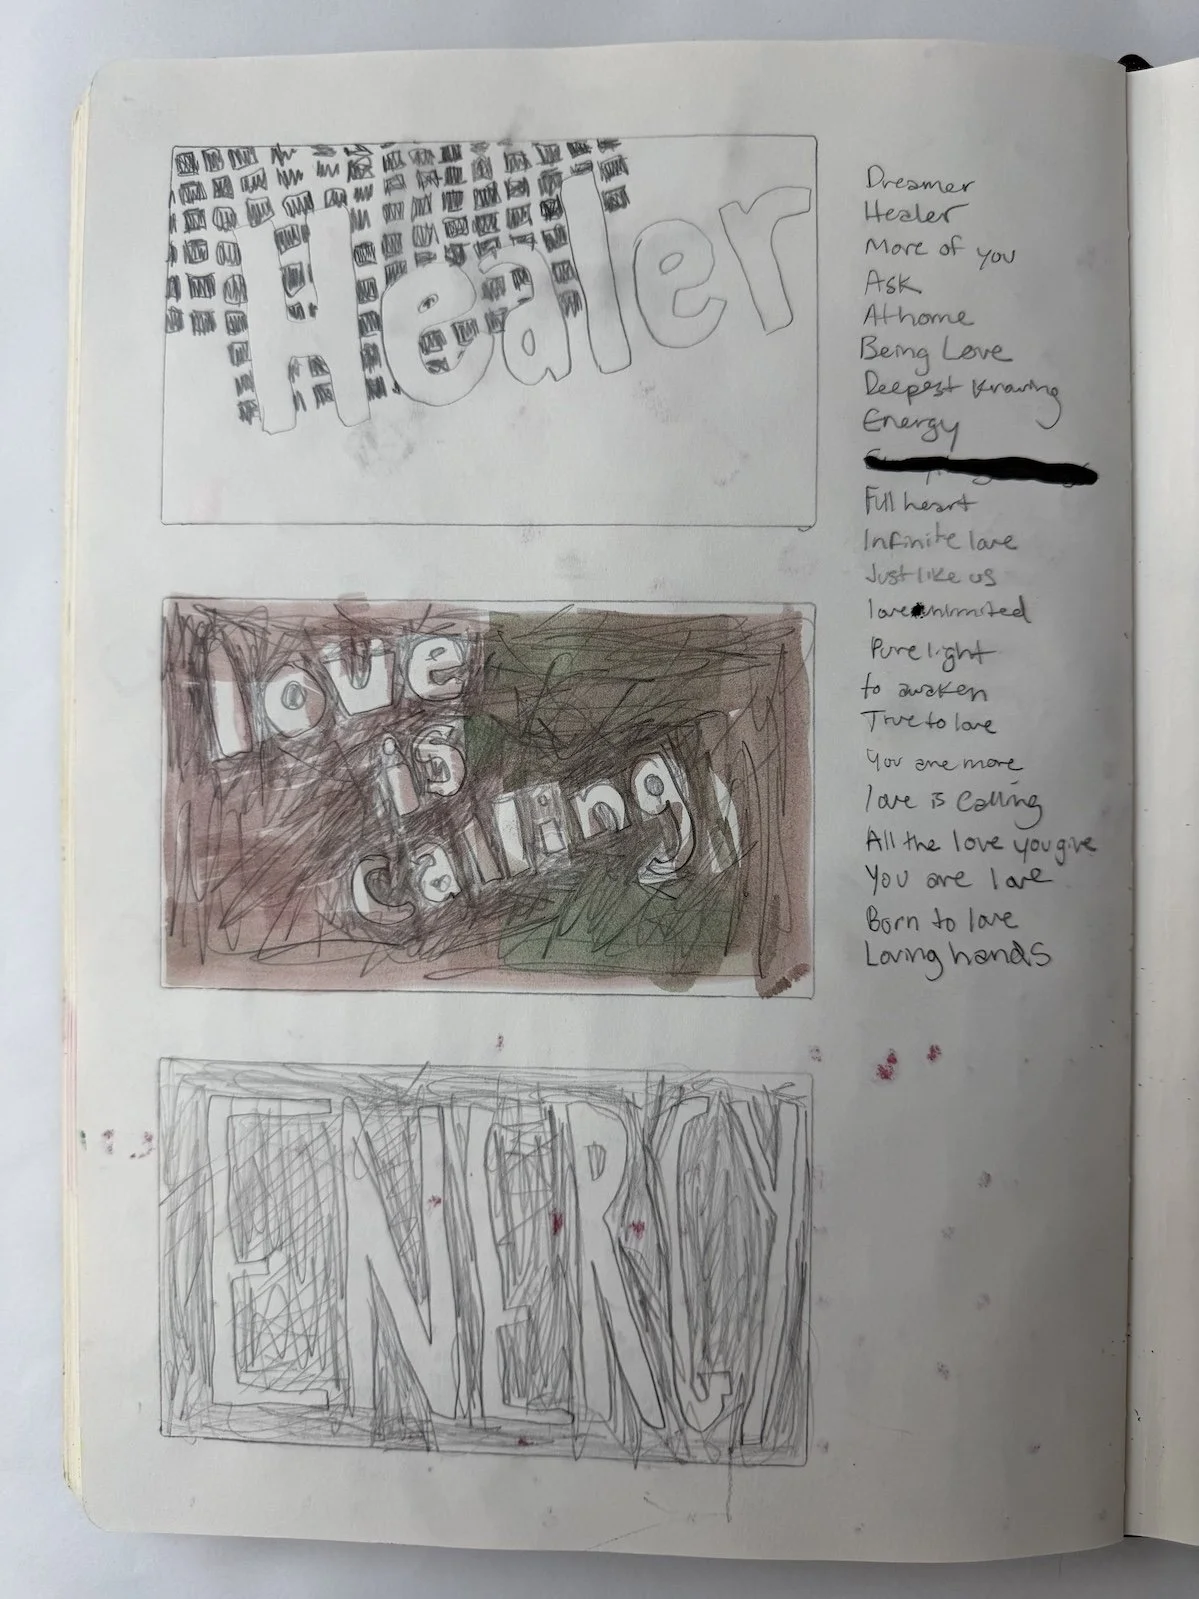 Healer
love
is
calling
ENERGY
Dreamer
Healer
More of you
Ask
At home
Being Love
Deepest Knowing
Energy
Full heart
Infinite love
Just like us
love unlimited
Pure light
to awaken
True to love
You are more
love is calling
All the love you give
You are love
Born to love
Loving hands